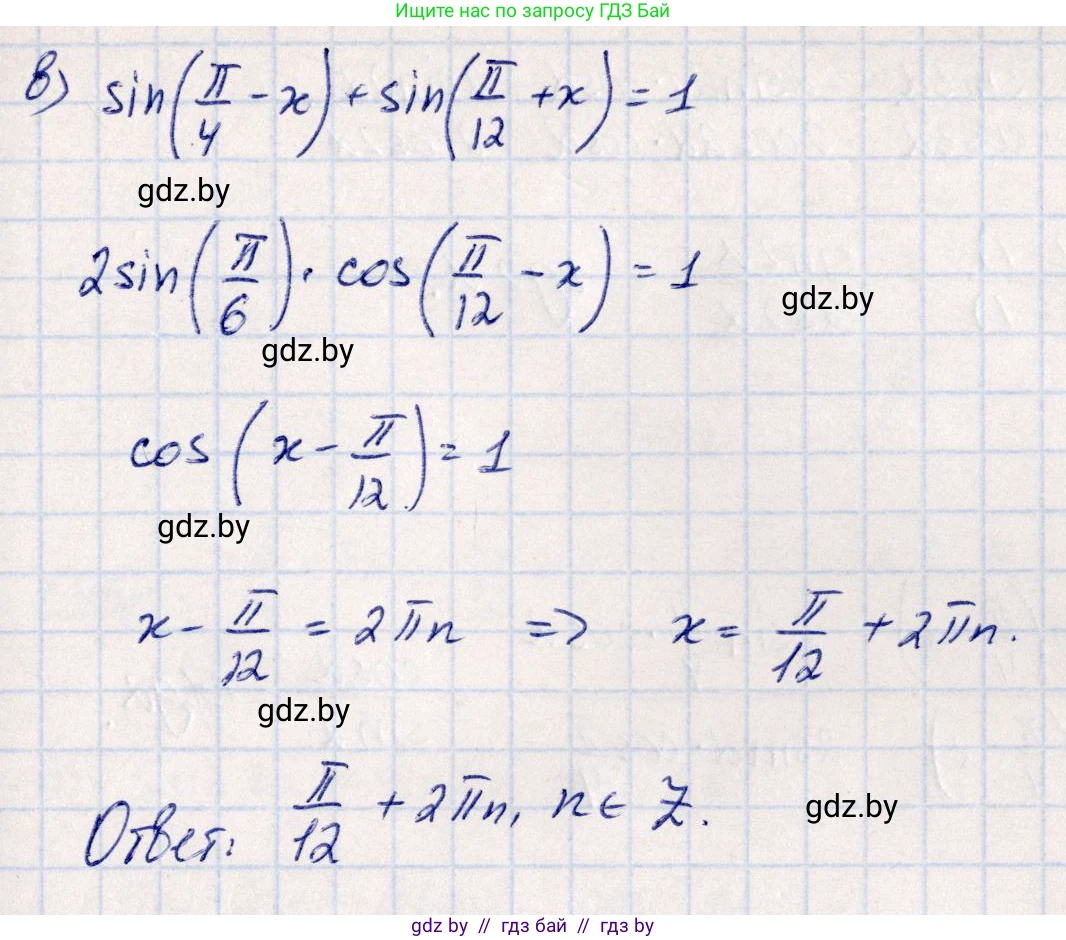 Ищите нас по запросу ГДЗ Бай
в) sin(π/4 - x) + sin(π/12 + x) = 1
gdz.by
2sin(π/6) · cos(π/12 - x) = 1
gdz.by
gdz.by
cos(x - π/12) = 1
gdz.by
x - π/12 = 2πn => x = π/12 + 2πn.
gdz.by
Ответ: π/12 + 2πn, n ∈ Z.
gdz.by
gdz by // гдз бай // гдз by